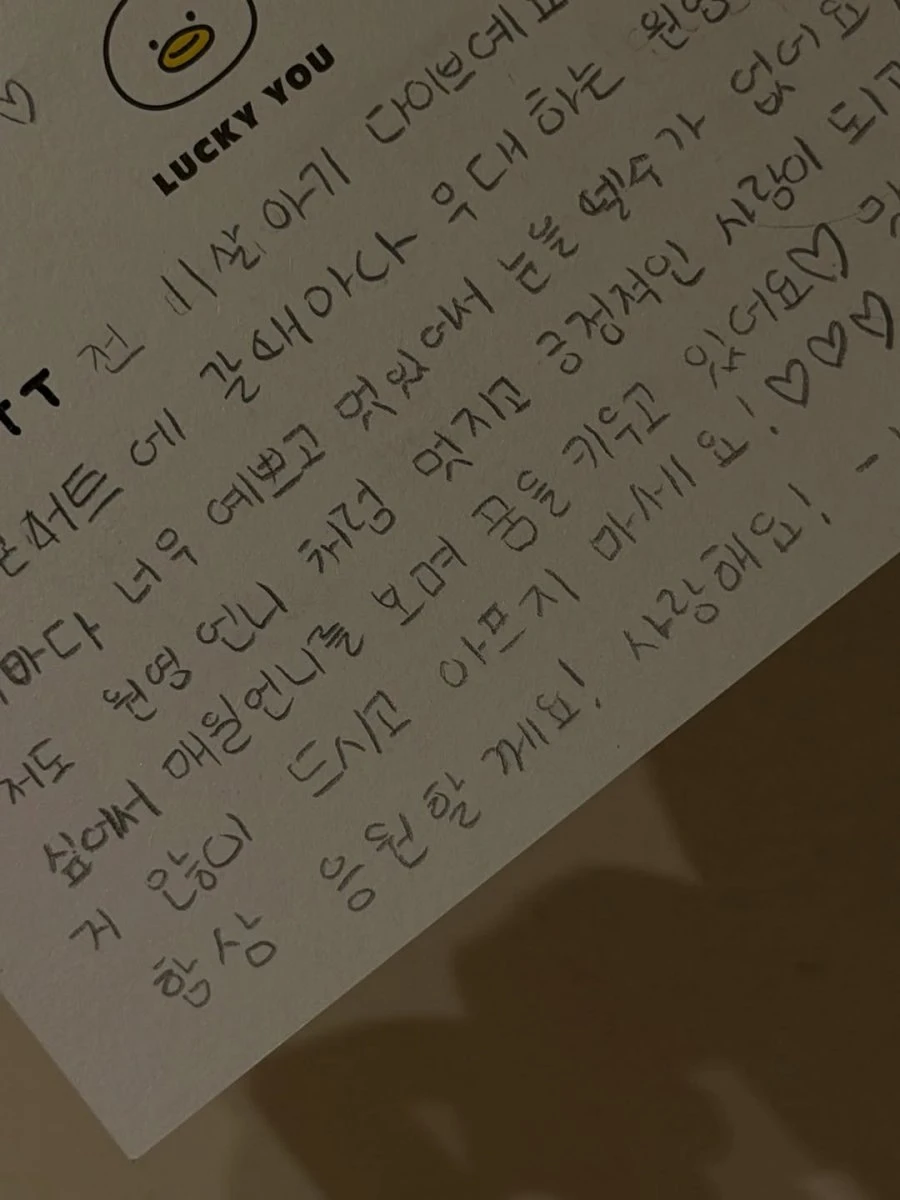 LUCKY YOU
TT 전 11살 아기 다이브예요
콘서트에 갈때 마다 우대 하는 원영
마다 너무 예쁘고 멋있어서 눈을 뗄수가 없어요
저도 원영 언니 처럼 멋지고 긍정적인 사람이 되고
싶어서 매일 언니를 보며 꿈을 키우고 있어요♡
거 많이 드시고 아프지 마세요! ♡♡♡
항상 응원할께요! 사랑해요! -